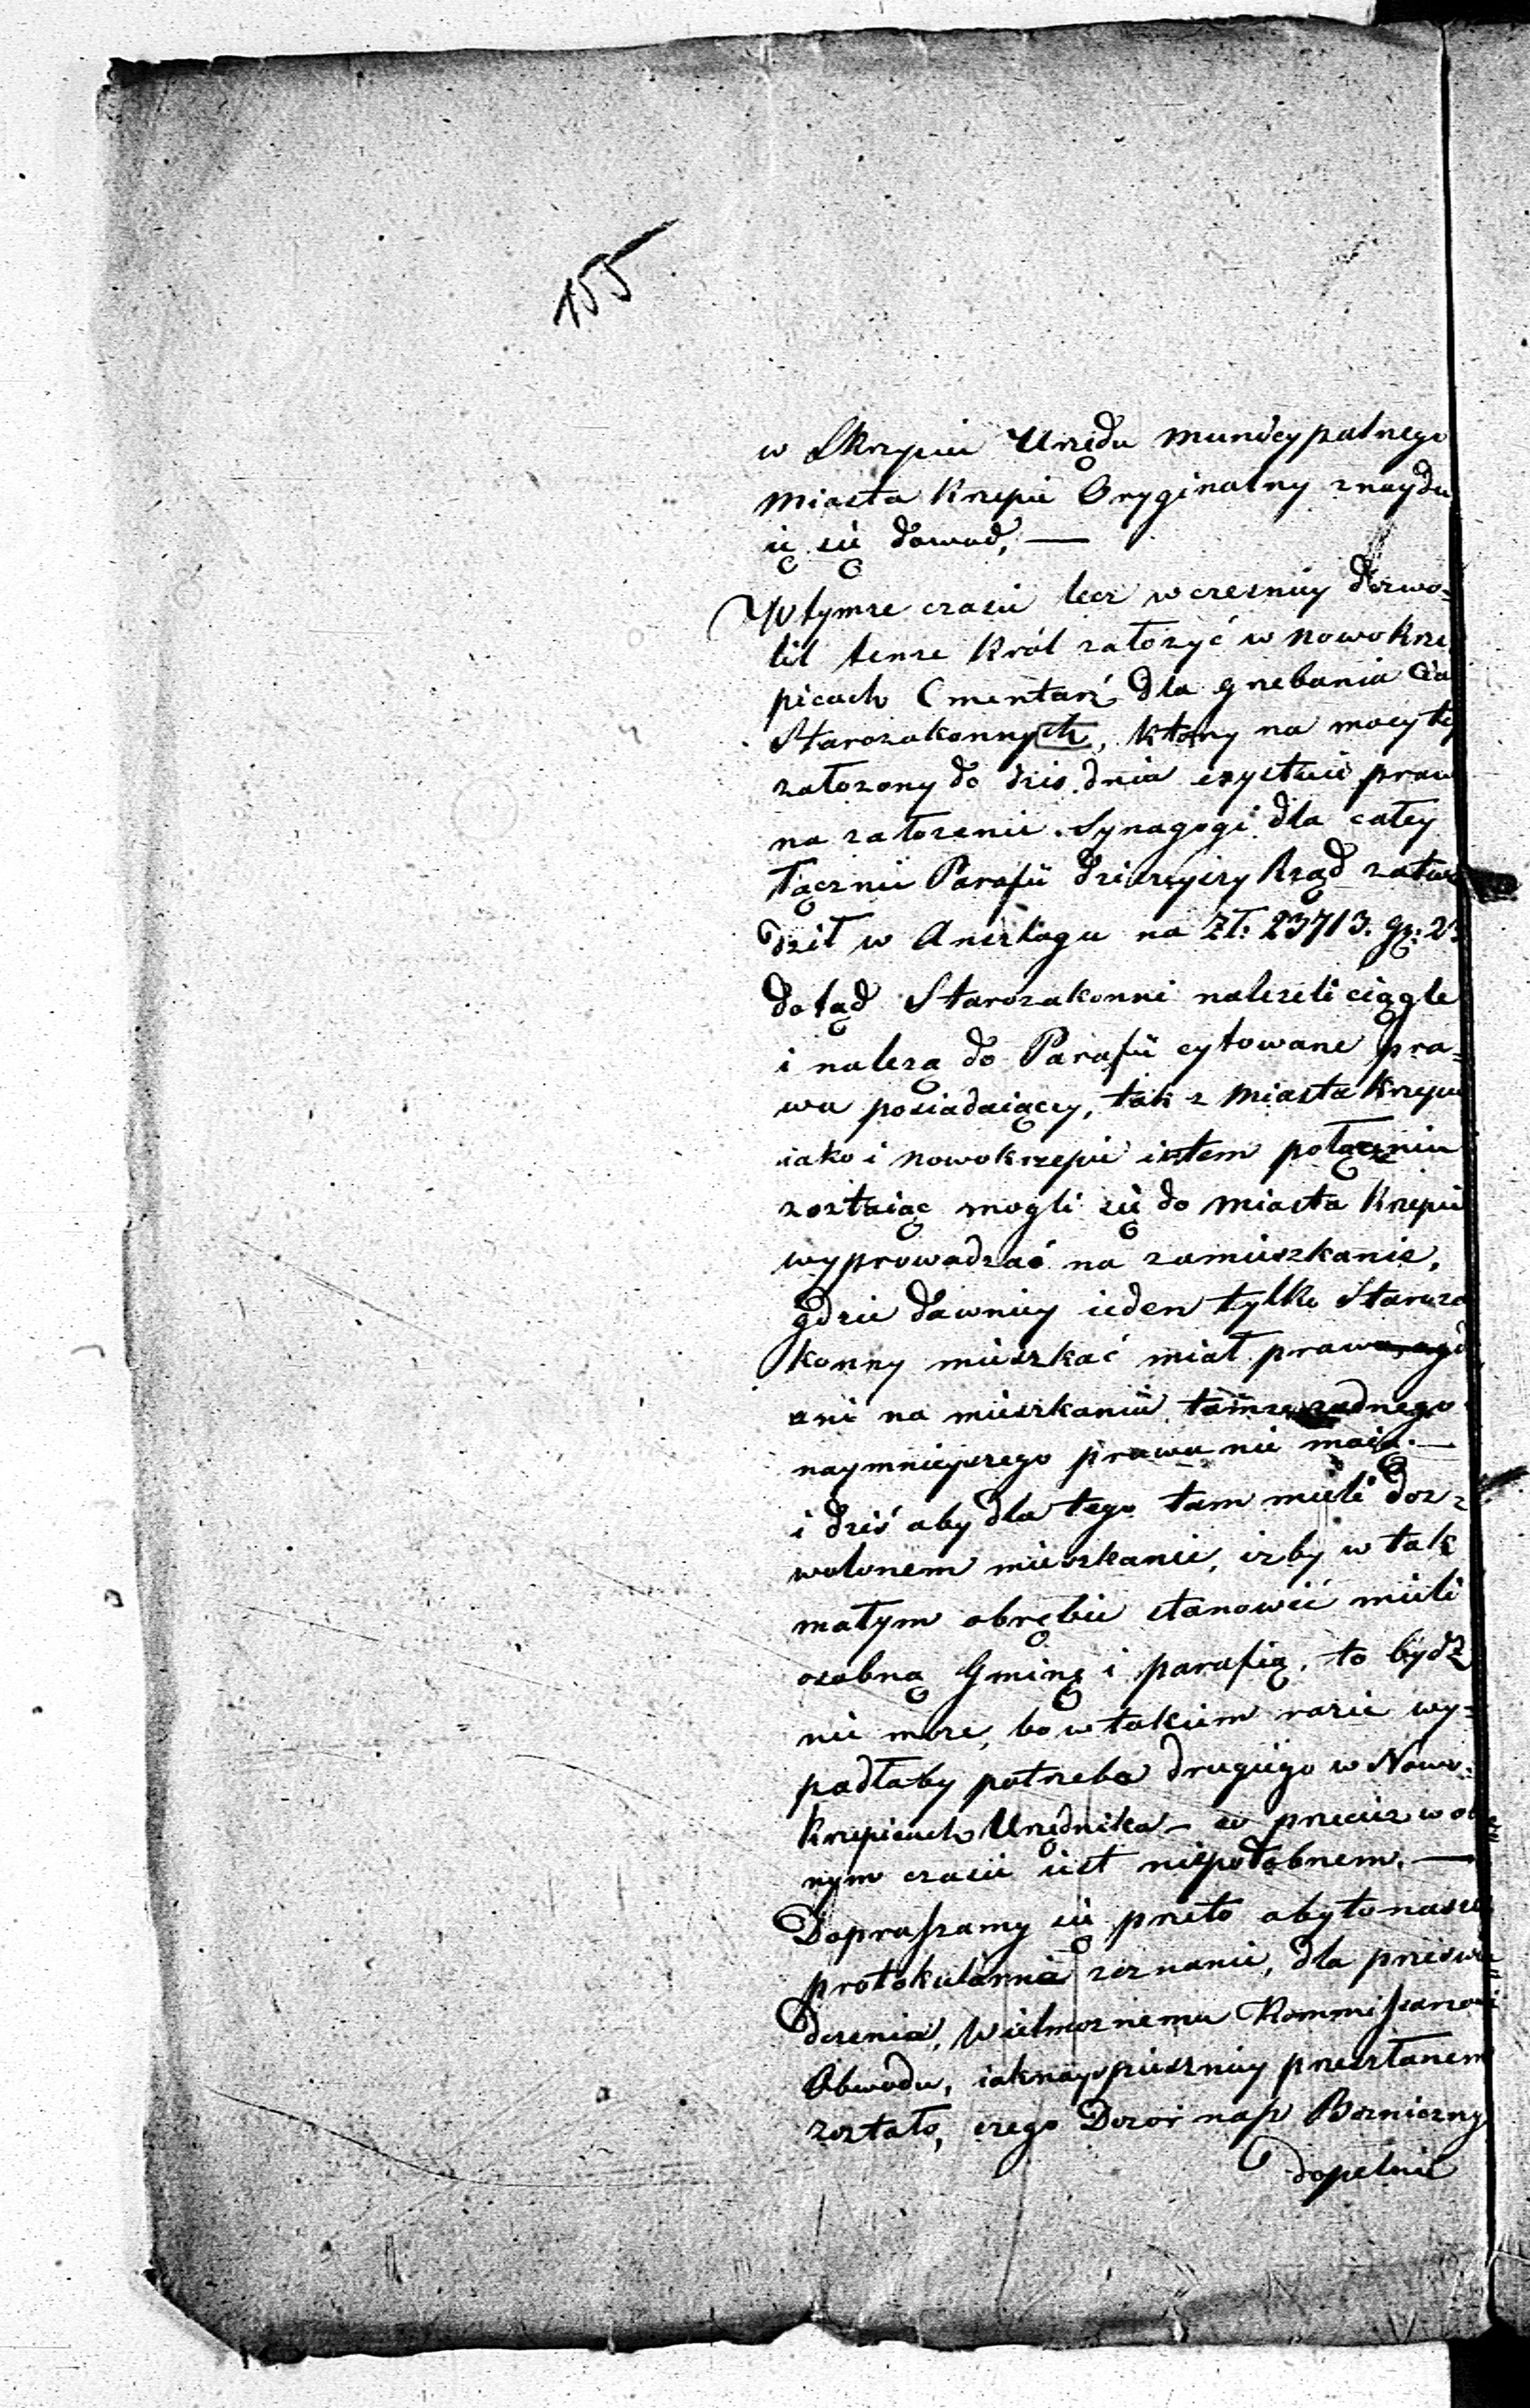 155
w Skrzyni Urzędu Municypalnego
Miasta Krzepic Oryginalny znaydu
ię się dowod, —
W tymze czasie lecz wczesniey dozwo=
lił tenze Król założyć w Nowokrze
picach Cmentarz dla grzebania Cia
Starozakonnych, który na mocy tey
założony do dzis dnia exystuie praw
na założenie Synagogi dla całey
łącznie Parafii dzisieyszy Rząd zatwi
dził w Anszlagu na Zł: 23713. gr: 23
dotąd Starozakonni należeli ciągle
i należą do Parafii cytowane pra=
wa posiadaiący, tak z Miasta Krzepic
iako i Nowokrzepic i w tem połączeniu
zostaiąc mogli się do Miasta Krzepic
wyprowadzać na zamieszkanie,
gdzie dawniey ieden tylko Staroza
konny mieszkać miał prawo, a gdy
oni na mieszkanie tamże żadnego
naymnieyszego prawa nie maią. —
i dziś aby dla tego tam mieli doz=
wolonem mieszkanie, izby w tak
małym obrębie stanowić mieli
osobną Gminę i parafią, to bydź
nie może, bo w takiem razie wy=
padłaby potrzeba drugiego w Nowo=
krzepicach Urzędnika — co przecież w o
nym czasie iest niepodobnem. —
Dopraszamy się przeto aby to nasze
protokularne zeznanie, dla przeswia
dczenia, Wielmożnemu Kommissarzowi
Obwodu, iaknayspieszniey przesłanem
zostało, czego Dozór nasz Bożniczny
dopełnić